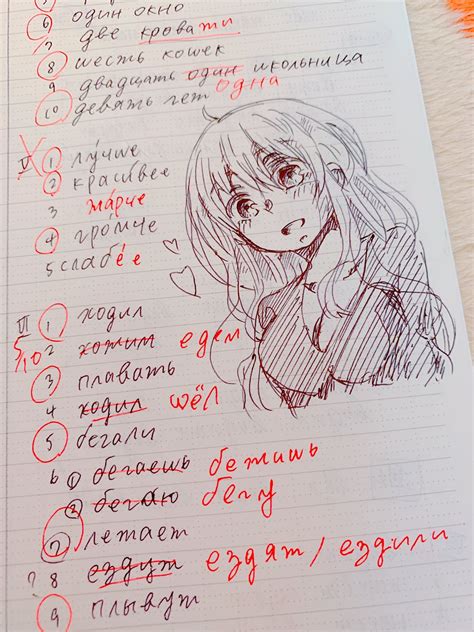 6 один окно
7 две кровати
8 шесть кошек
9 двадцать один школьница
одна
10 девять лет
V 1 лучше
2 красивее
3 жарче
4 громче
5 слабее
VI 1 ходил
5/10
2 едем
3 плавать
4 ходил шёл
5 бегали
6 1 бегаешь бежишь
2 бегаю бегу
7 летает
? 8 ездут ездят / ездили
9 плывут